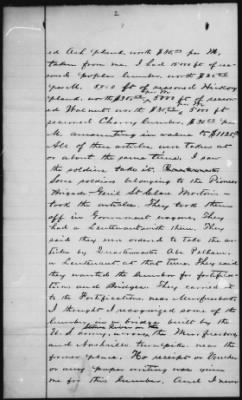 2
ed Ash plank, worth $30.00 per M,
taken from me. I had 15000 ft of sea-
soned poplar lumber, worth $20.00
per M. ft of seasoned Hickory
plank, worth per M. 5000 ft of season-
ed Walnut worth per M. 5000 ft
seasoned Cherry lumber, $30.00 per
M. amounting in value to
All of these articles were taken at
or about the same time. I saw
the soldiers take it.
Some soldiers belonging to the Pioneer
Brigade Genl St Clair Morton's
took the articles. They took them
off in Government wagons. They
had a Lieutenant with them. They
said they were ordered to take the ar-
ticles by Quartermaster
a Lieutenant at that time. They said
they wanted the lumber for fortifica-
tions and Bridges. They carried it
to the Fortifications, near Murfreesboro
I thought I recognized some of the
lumber in a bridge built by the
U.S. army, across Stone River on the Murfreesboro
and Nashville turnpike, near the
former place. No receipt or Voucher
or any paper writing was given
me for this lumber. And I never